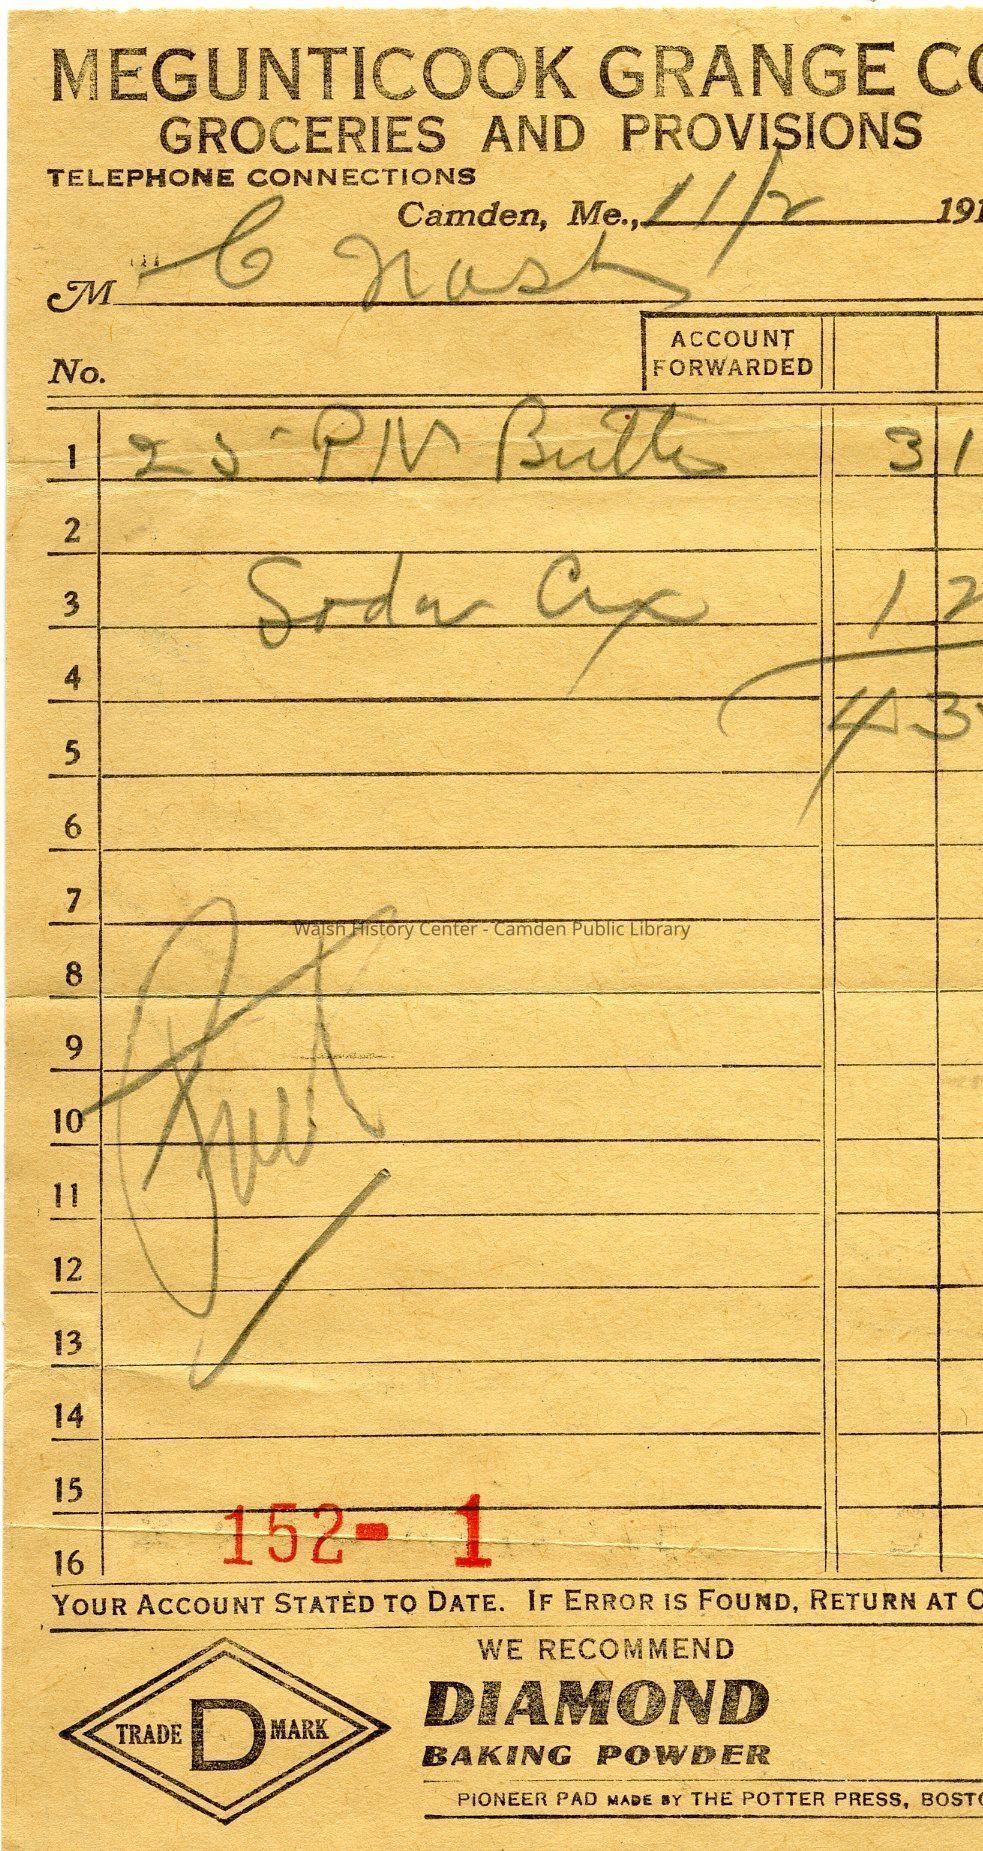 MEGUNTICOOK GRANGE CO
GROCERIES AND PROVISIONS
TELEPHONE CONNECTIONS
Camden, Me., 11/2 191
M C Nash
No. ACCOUNT FORWARDED
1 25 PN Butter 31
2
3 Soda Crx 12
4
43
5
6
7
Walsh History Center - Camden Public Library
8
9
10
11
12
13
14
15
152- 1
16
YOUR ACCOUNT STATED TO DATE. IF ERROR IS FOUND, RETURN AT O
WE RECOMMEND
DIAMOND
TRADE D MARK
BAKING POWDER
PIONEER PAD MADE BY THE POTTER PRESS, BOSTO